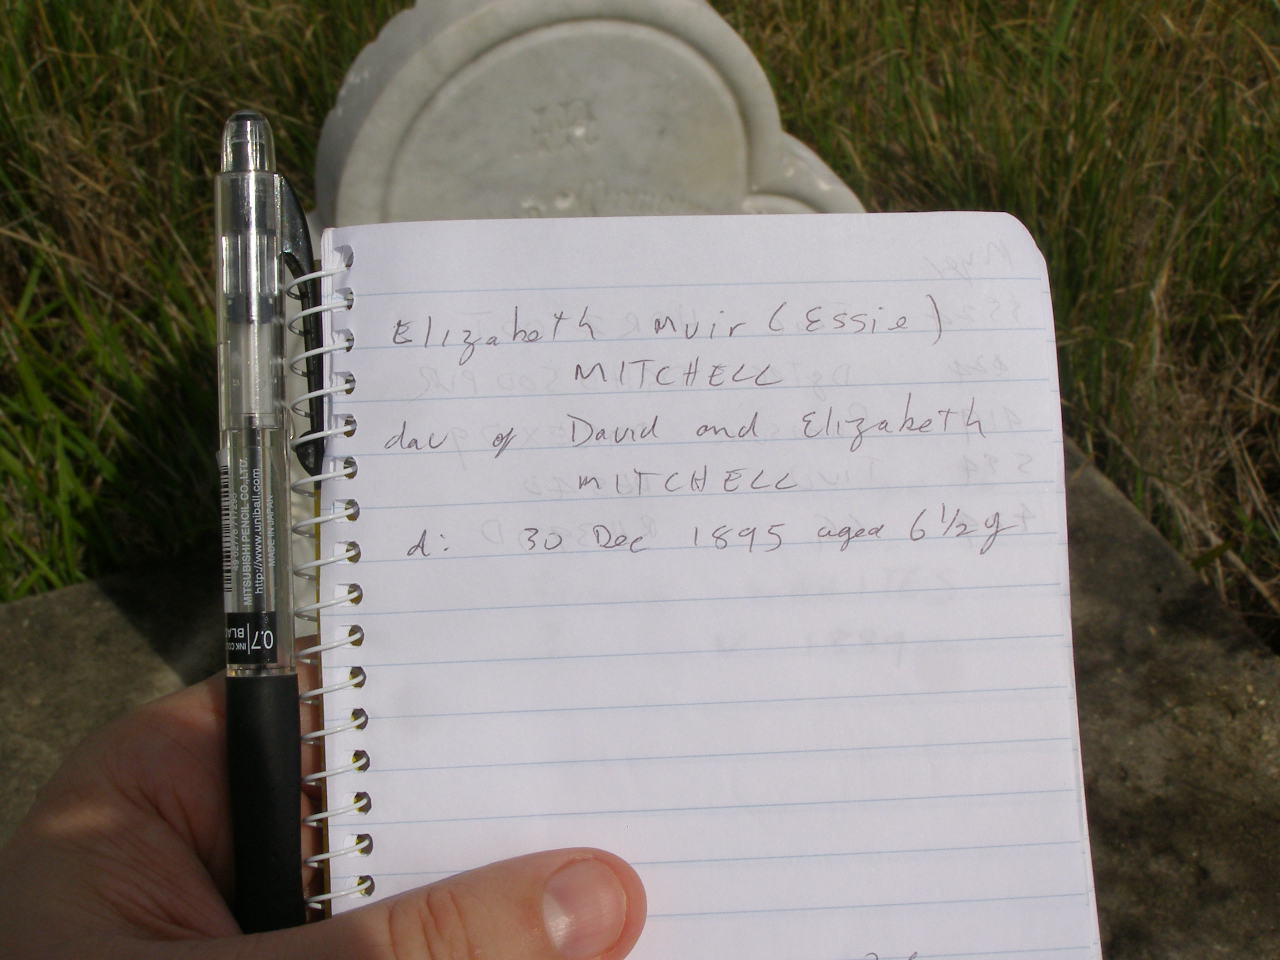 Elizabeth Muir (Essie)
MITCHELL
dau of David and Elizabeth
MITCHELL
d: 30 Dec 1895 aged 6 1/2 y
MITSUBISHI PENCIL CO.,LTD.
http://www.uniball.com
MADE IN JAPAN
0.7